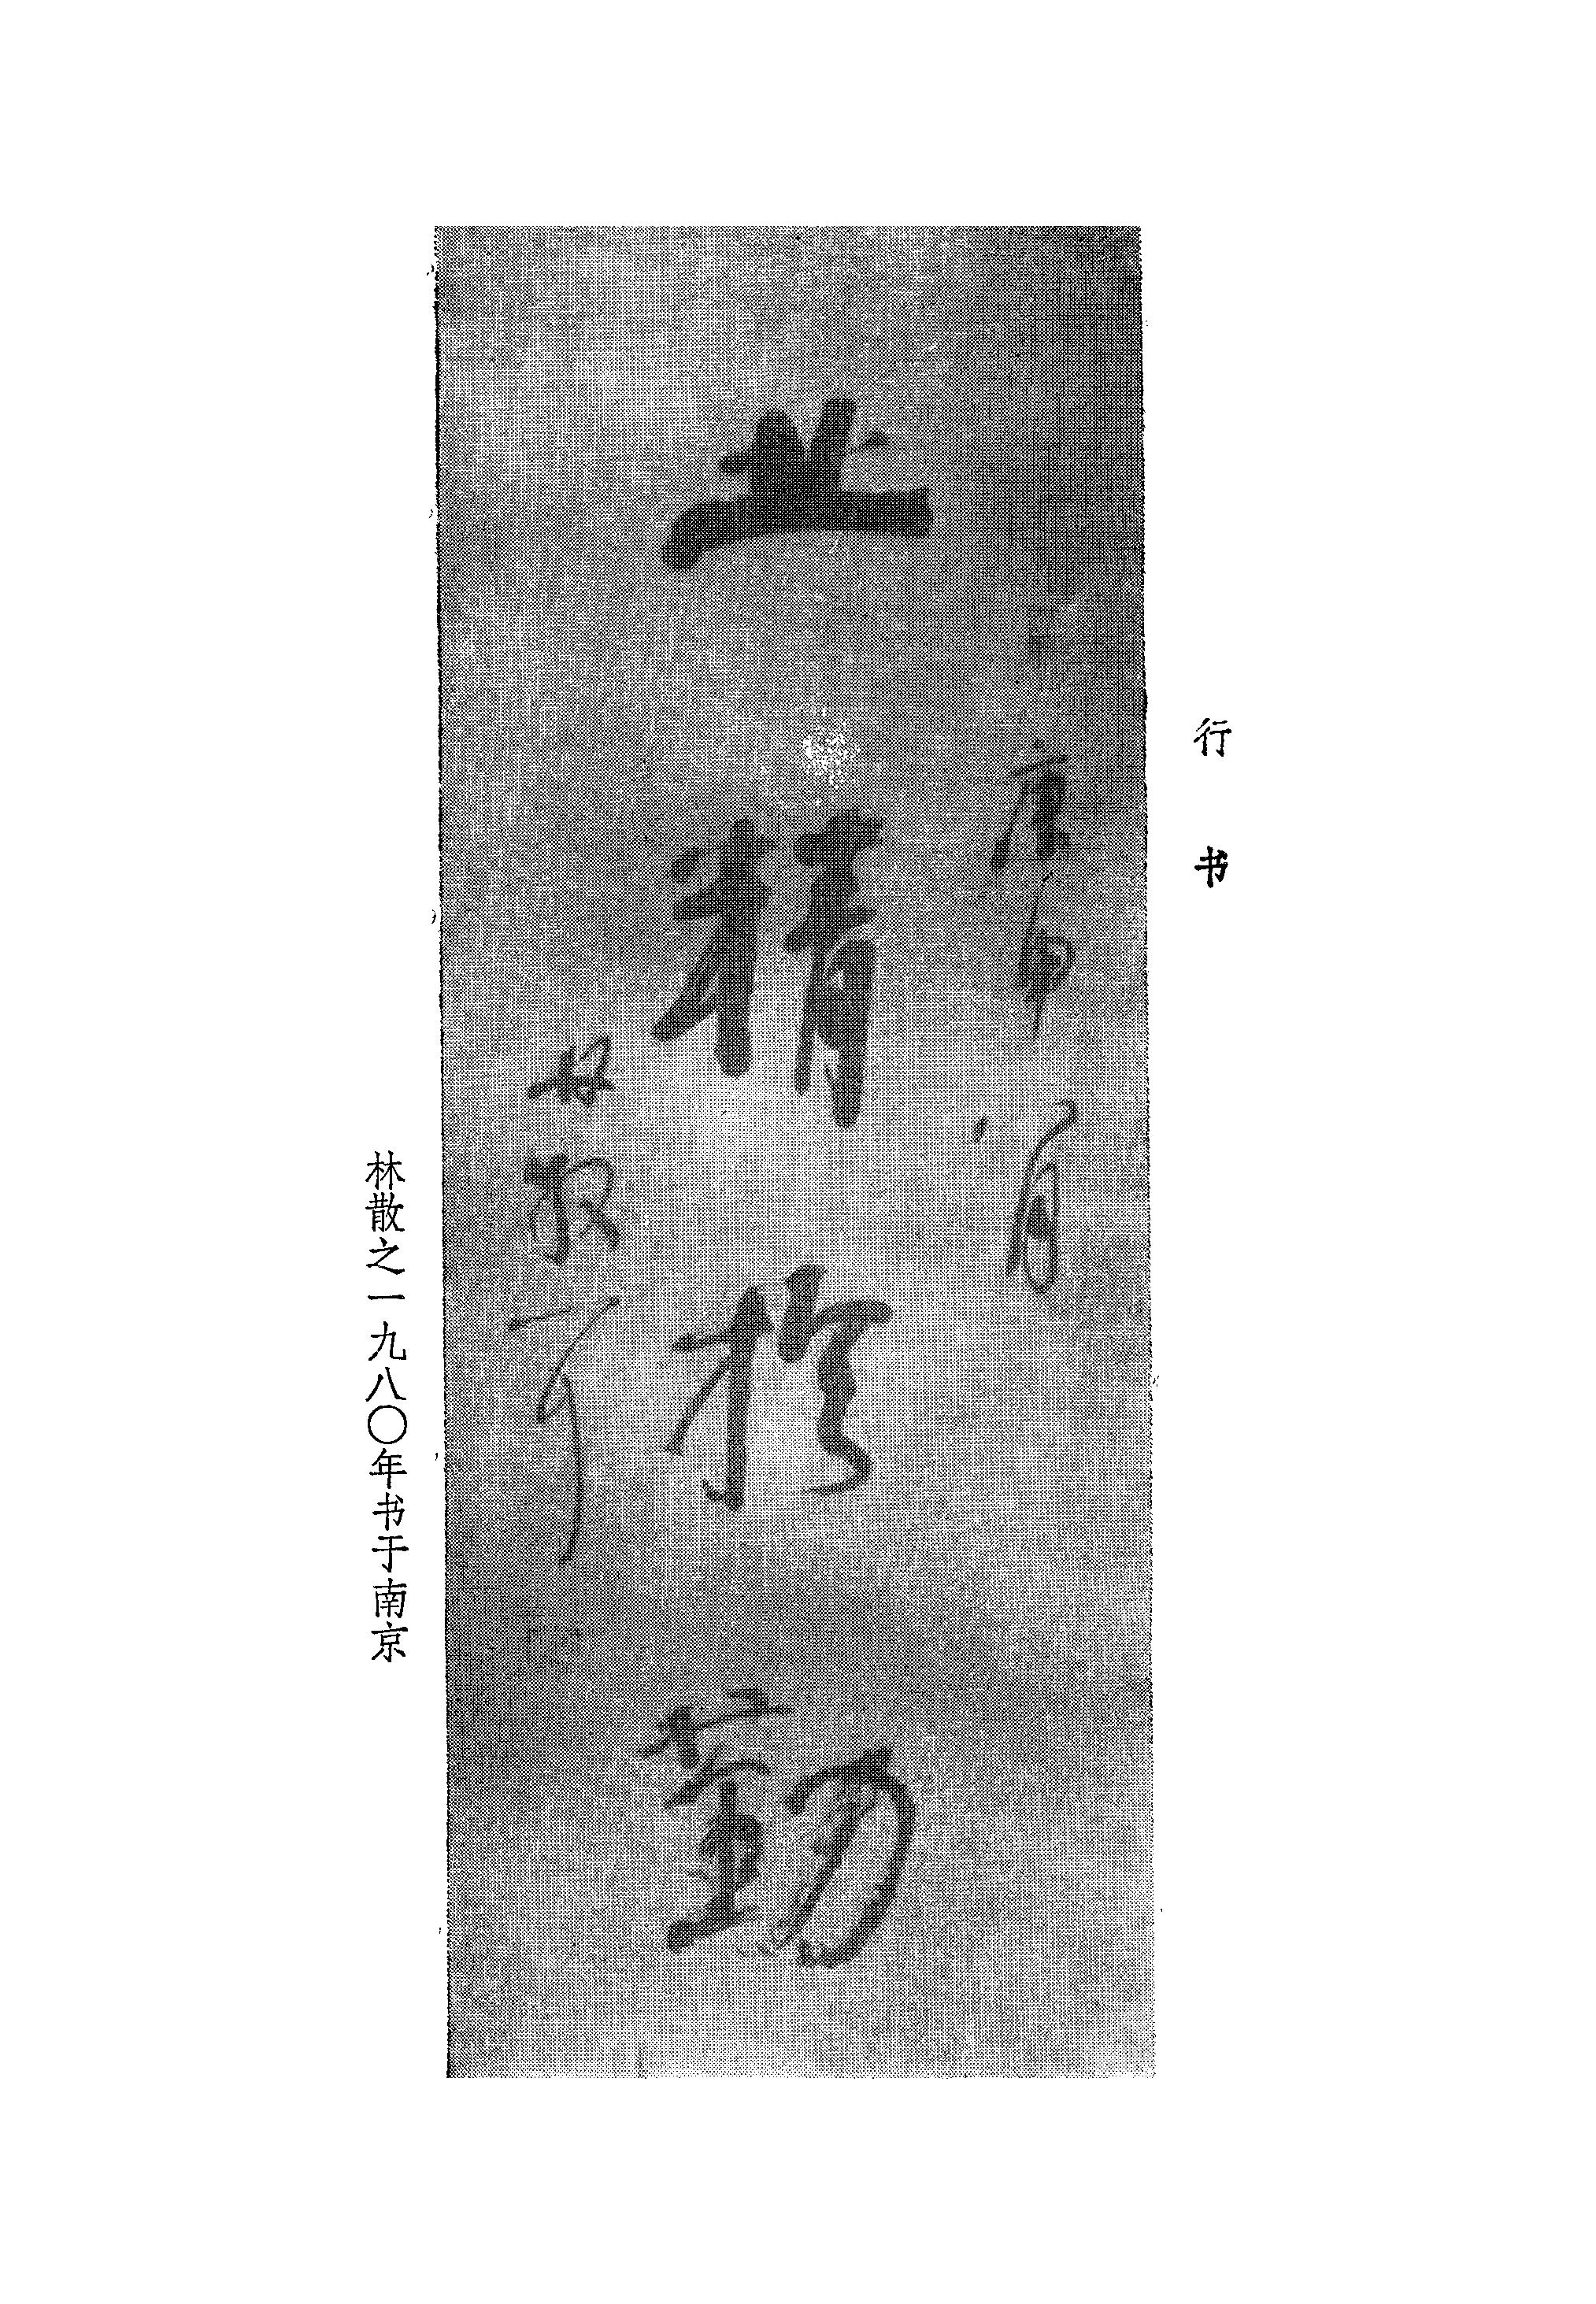 行书
庚申一月
业精於勤
林散耳
林散之一九八〇年书于南京